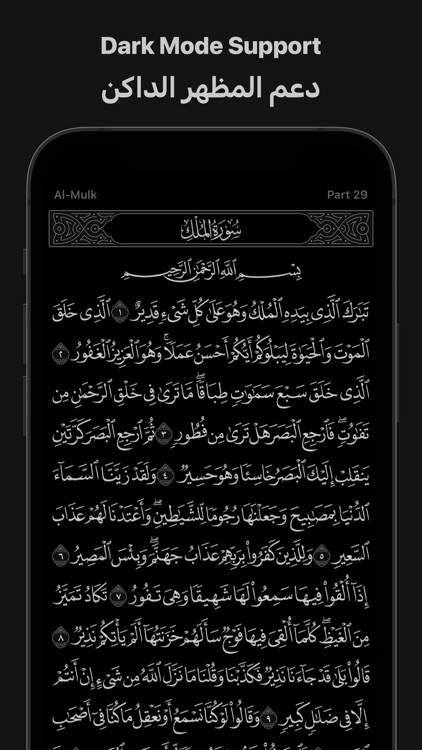 Dark Mode Support
دعم المظهر الداكن
Al-Mulk
Part 29
سُورَةُ المُلْكِ
بِسْمِ ٱللَّهِ ٱلرَّحْمَٰنِ ٱلرَّحِيمِ
تَبَٰرَكَ ٱلَّذِى بِيَدِهِ ٱلْمُلْكُ وَهُوَ عَلَىٰ كُلِّ شَىْءٍ قَدِيرٌ ١ ٱلَّذِى خَلَقَ
ٱلْمَوْتَ وَٱلْحَيَوٰةَ لِيَبْلُوَكُمْ أَيُّكُمْ أَحْسَنُ عَمَلًا ۚ وَهُوَ ٱلْعَزِيزُ ٱلْغَفُورُ ٢
ٱلَّذِى خَلَقَ سَبْعَ سَمَٰوَٰتٍ طِبَاقًا ۖ مَّا تَرَىٰ فِى خَلْقِ ٱلرَّحْمَٰنِ مِن
تَفَٰوُتٍ ۖ فَٱرْجِعِ ٱلْبَصَرَ هَلْ تَرَىٰ مِن فُطُورٍ ٣ ثُمَّ ٱرْجِعِ ٱلْبَصَرَ كَرَّتَيْنِ
يَنقَلِبْ إِلَيْكَ ٱلْبَصَرُ خَاسِئًا وَهُوَ حَسِيرٌ ٤ وَلَقَدْ زَيَّنَّا ٱلسَّمَآءَ
ٱلدُّنْيَا بِمَصَٰبِيحَ وَجَعَلْنَٰهَا رُجُومًا لِّلشَّيَٰطِينِ ۖ وَأَعْتَدْنَا لَهُمْ عَذَابَ
ٱلسَّعِيرِ ٥ وَلِلَّذِينَ كَفَرُوا۟ بِرَبِّهِمْ عَذَابُ جَهَنَّمَ ۖ وَبِئْسَ ٱلْمَصِيرُ ٦
إِذَآ أُلْقُوا۟ فِيهَا سَمِعُوا۟ لَهَا شَهِيقًا وَهِىَ تَفُورُ ٧ تَكَادُ تَمَيَّزُ
مِنَ ٱلْغَيْظِ ۖ كُلَّمَآ أُلْقِىَ فِيهَا فَوْجٌ سَأَلَهُمْ خَزَنَتُهَآ أَلَمْ يَأْتِكُمْ نَذِيرٌ ٨
قَالُوا۟ بَلَىٰ قَدْ جَآءَنَا نَذِيرٌ فَكَذَّبْنَا وَقُلْنَا مَا نَزَّلَ ٱللَّهُ مِن شَىْءٍ إِنْ أَنتُمْ
إِلَّا فِى ضَلَٰلٍ كَبِيرٍ ٩ وَقَالُوا۟ لَوْ كُنَّا نَسْمَعُ أَوْ نَعْقِلُ مَا كُنَّا فِىٓ أَصْحَٰبِ